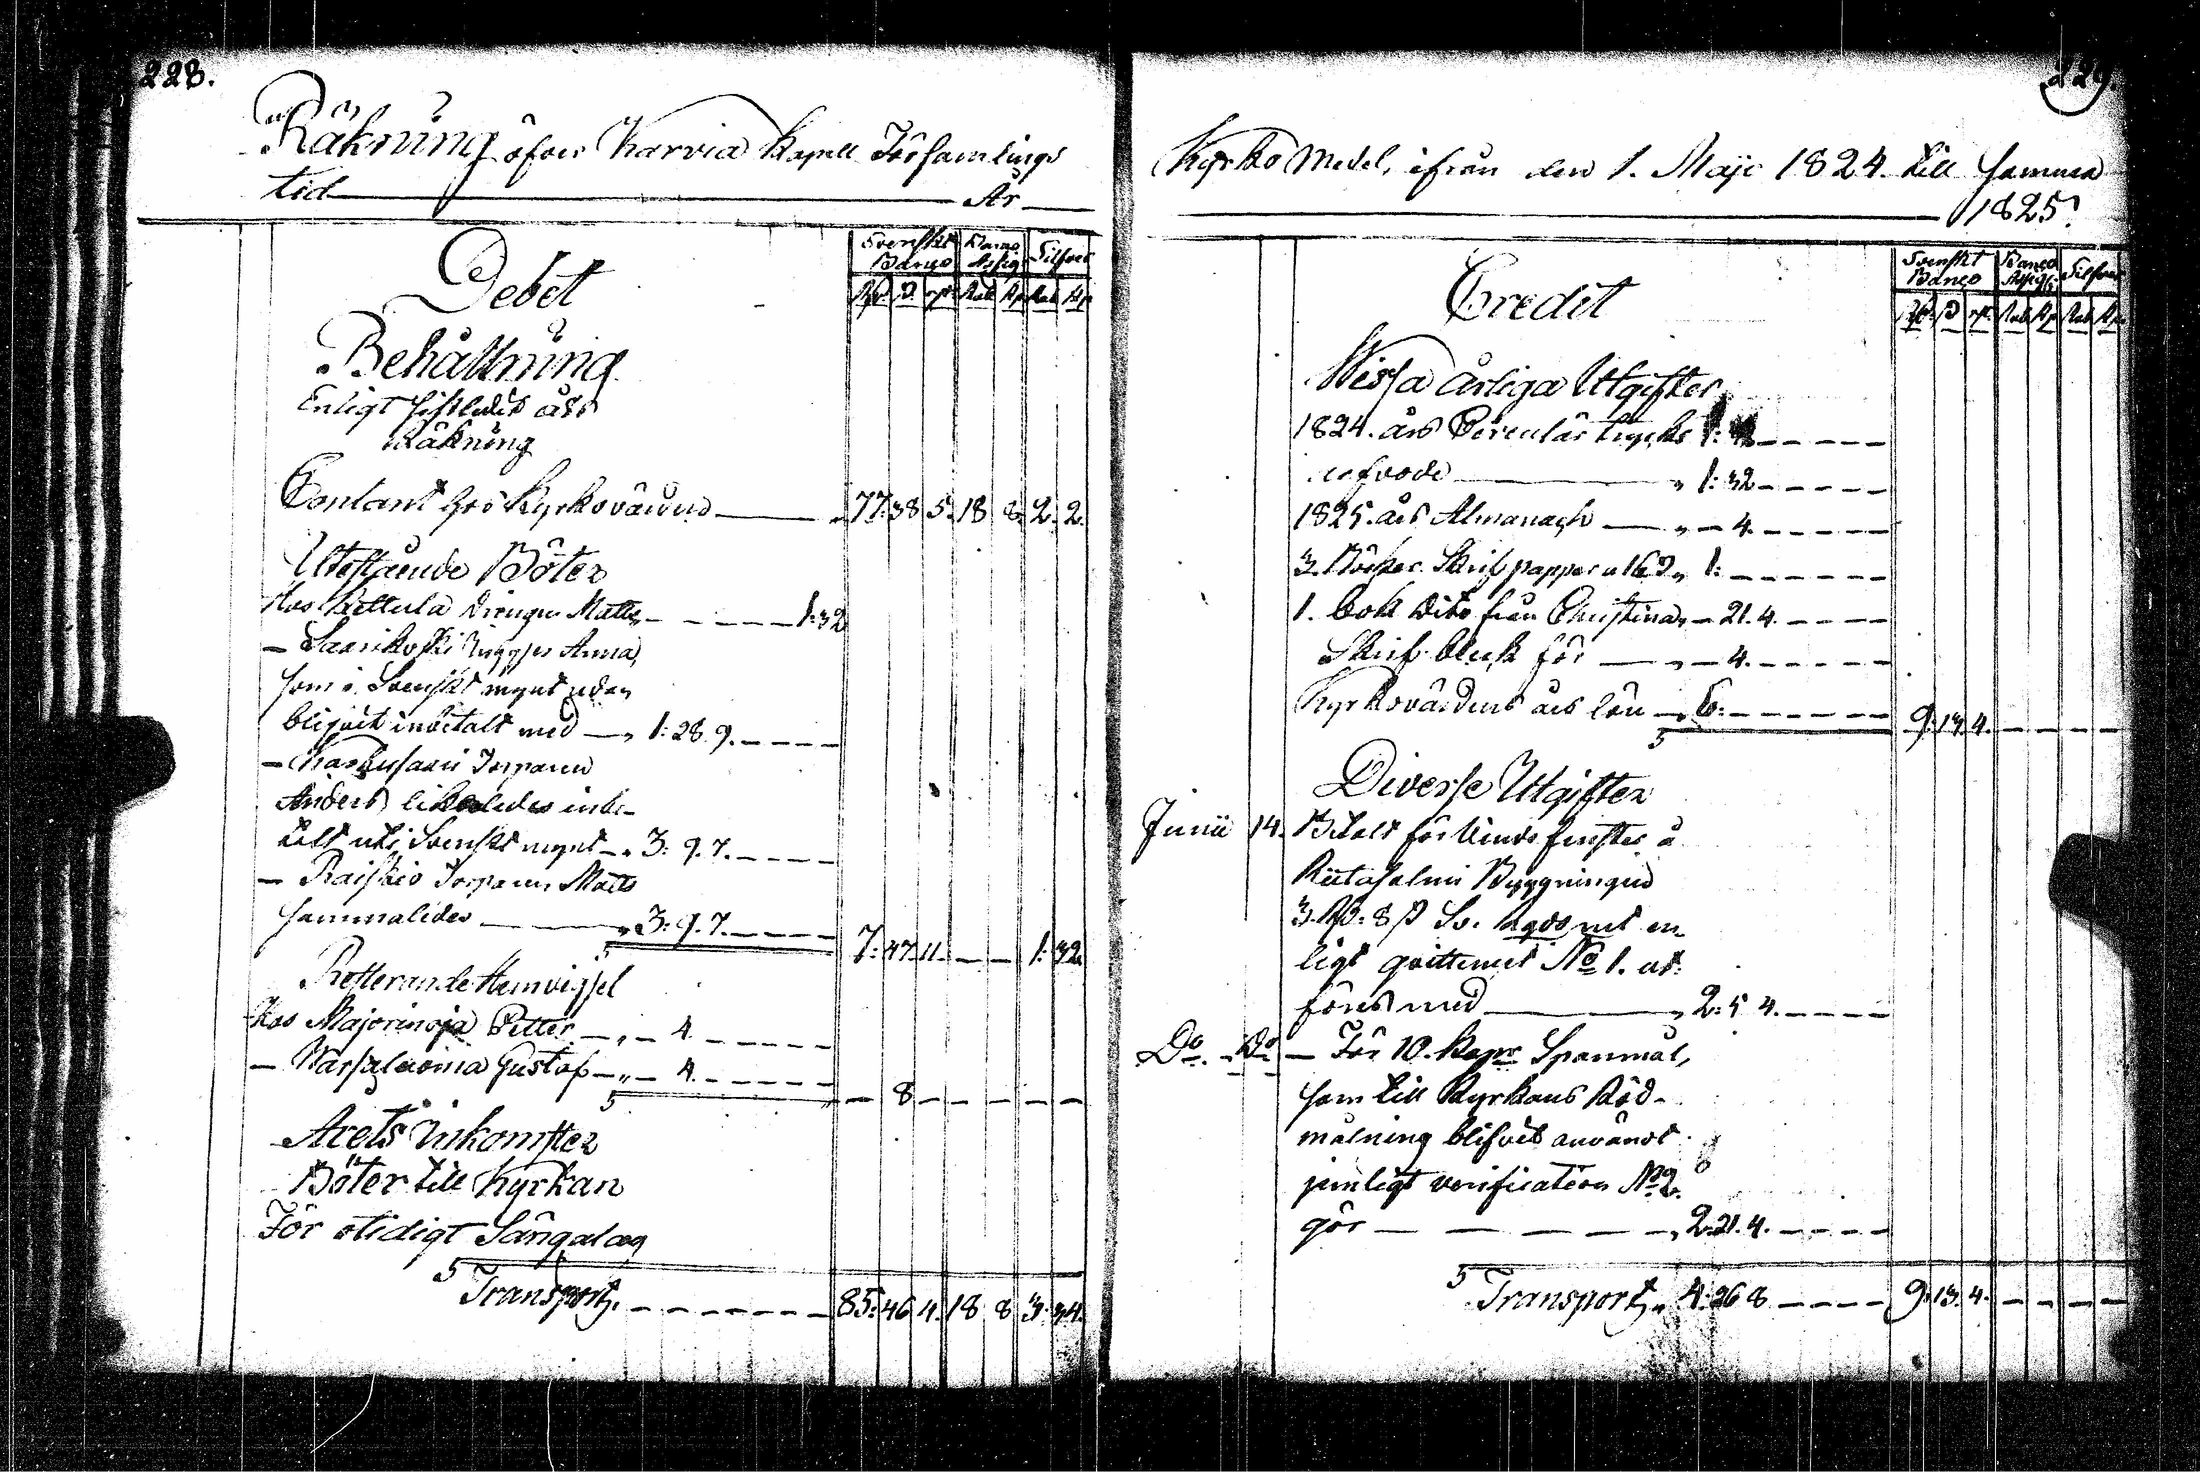 228.
Räkning öfver Karvia Kapell Församlings
tid År
Debet
Svenskt Banco
Banco Assig
Silfver
Rd. ß rst. Rub Kp Rub Kp
Behållning
Enligt sistledit års
Räkning
Contant hos Kyrkovärden 77: 38 5. 18 8. 2. 2.
Utestående Böter
Hos Kettula Drengen Matts 1: 32
Saarikoski Anna,
som i Svenskt mynt redan
blifvit inbetalt med 1: 28. 9.
Torparen
Anders likaledes inbe-
talt uti Svenskt mynt 3: 9. 7.
Raiskio Torparen Matts
sammalides 3: 9. 7.
S 7: 47. 11. 1: 32.
Resterande Hemvigsel
Hos Majorinoja Petter 4
Gustaf 4.
S 8
Årets Inkomster
Böter till Kyrkan
För otidigt Sängalag
S Transport. 85: 46 4. 18 8 3: 34.
229.
Kyrko Medel, ifrån den 1. Maji 1824. till samma
1825.
Credit
Svenskt Banco
Banco Assig.
Silfver
Rd. ß rst. Rub Kp Rub Kp
Wissa årliga Utgifter
1824. års Circulär trycks
arfvode 1: 32
1825. års Almanach 4.
3. Böcker Skrif papper a 16 ß 1:
1. bok dito från Christina 21. 4.
Skrif bleck för 4.
Kyrkovärdens års lön 5:
S 9: 13. 4.
Diverse Utgifter
Junii 14. Betalt för Vinds fenster å
Byggningen
3. Rd: 8 ß Sv. Rgds mt en-
ligt qvittencet No 1. ut-
föres med 2: 5 4.
Do. Do För 10. Kapr Spanmål,
som till Kyrkans Röd-
målning blifvit använot
jemligt verification No 2.
gör 2. 21. 4.
S Transport 4: 26 8 9. 13. 4.